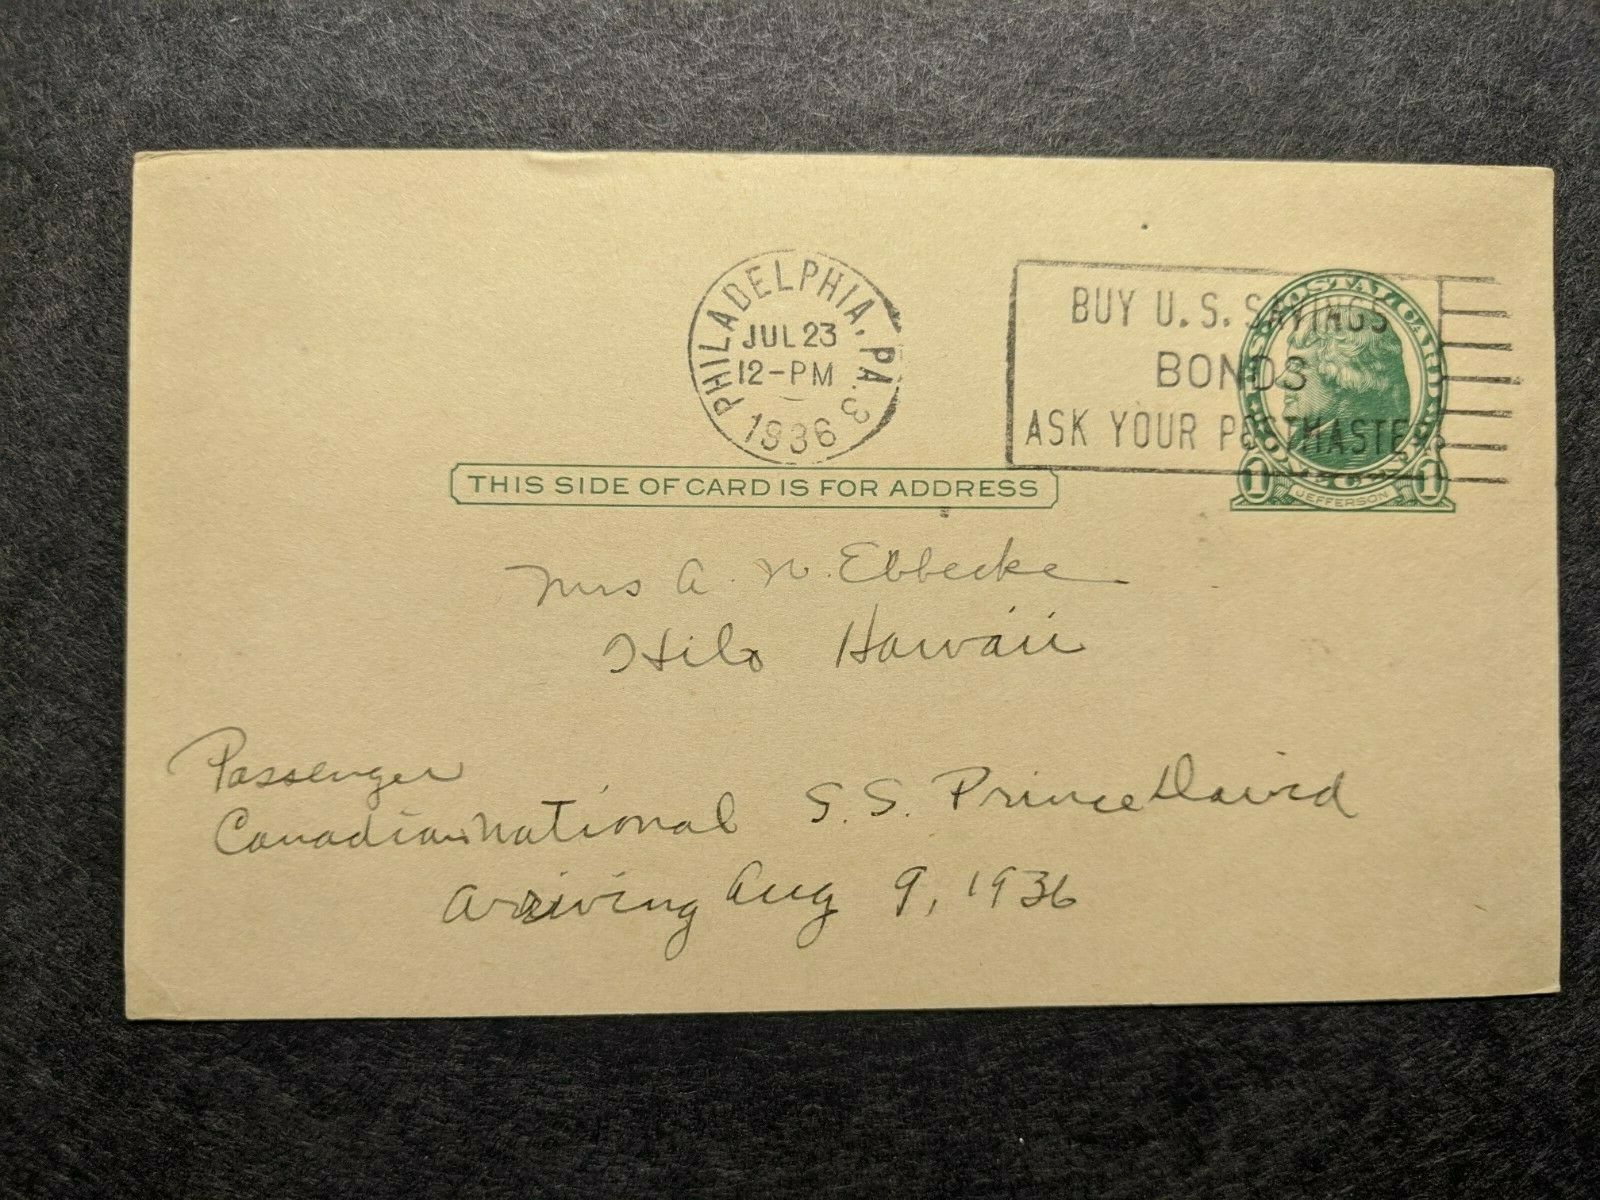 PHILADELPHIA, PA. 3
JUL 23
12-PM
1936
BUY U.S. SAVINGS
BONDS
ASK YOUR POSTMASTER
U.S. POSTAL CARD
1 1
JEFFERSON
THIS SIDE OF CARD IS FOR ADDRESS
Mrs A. N. Ebbecke
Hilo Hawaii
Passenger
Canadian National S. S. Prince David
Arriving Aug 9, 1936